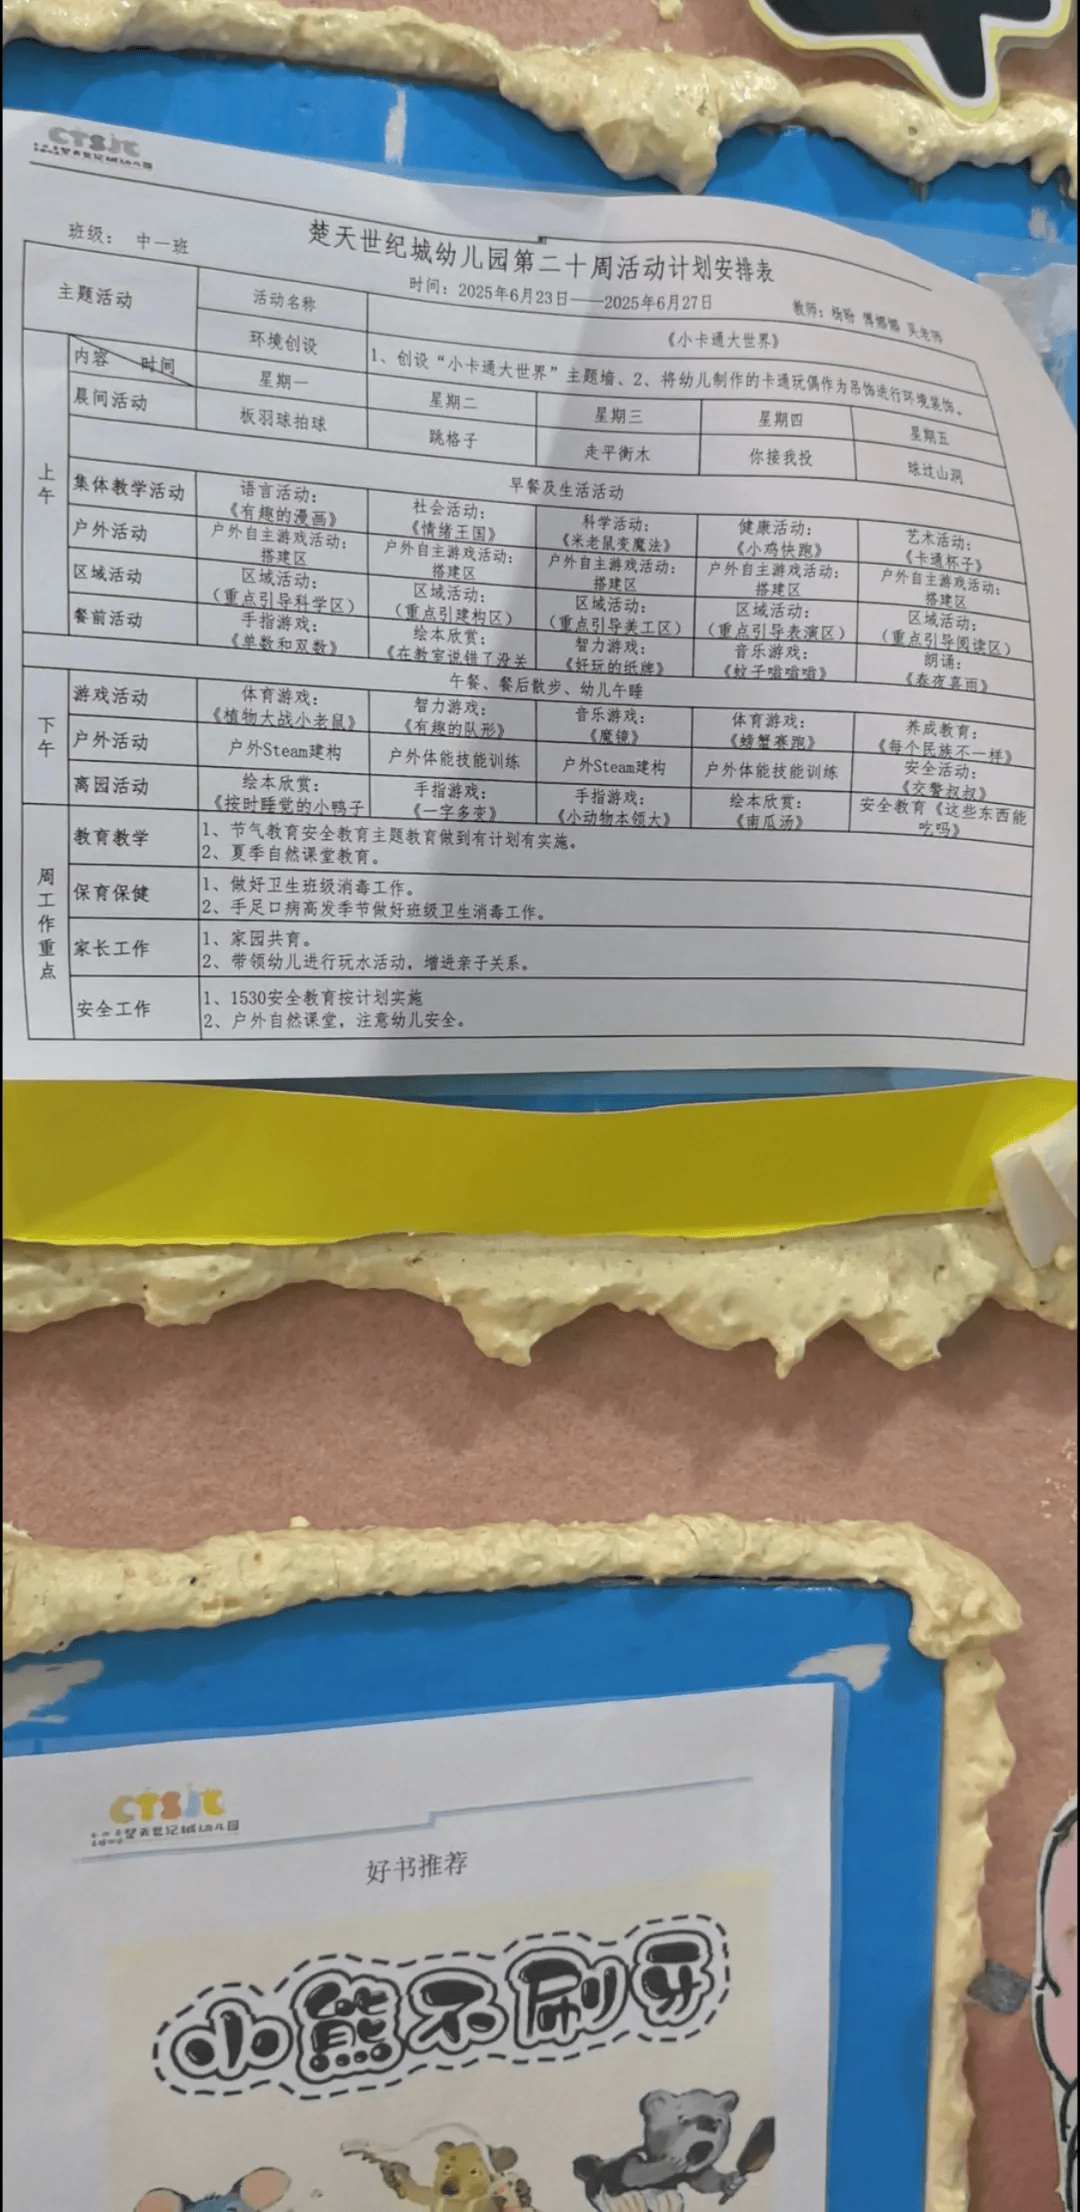 CTSJC
楚天世纪城幼儿园
楚天世纪城幼儿园第二十周活动计划安排表
班级： 中一班
时间：2025年6月23日——2025年6月27日
教师：杨盼 吴老师
主题活动
活动名称
《小卡通大世界》
环境创设
1、创设“小卡通大世界”主题墙、2、将幼儿制作的卡通玩偶作为吊饰进行环境装饰。
内容 时间 星期一 星期二 星期三 星期四 星期五
上午
晨间活动 板羽球拍球 跳格子 走平衡木 你接我投 球过山洞
早餐及生活活动
集体教学活动 语言活动： 社会活动： 科学活动： 健康活动： 艺术活动：
《有趣的漫画》 《情绪王国》 《米老鼠变魔法》 《小鸡快跑》 《卡通杯子》
户外活动 户外自主游戏活动： 户外自主游戏活动： 户外自主游戏活动： 户外自主游戏活动： 户外自主游戏活动：
搭建区 搭建区 搭建区 搭建区 搭建区
区域活动 区域活动： 区域活动： 区域活动： 区域活动： 区域活动：
（重点引导科学区） （重点引建构区） （重点引导美工区） （重点引导表演区） （重点引导阅读区）
餐前活动 手指游戏： 绘本欣赏： 智力游戏： 音乐游戏： 朗诵：
《单数和双数》 《在教室说错了没关 《好玩的纸牌》 《蚊子嗡嗡嗡》 《春夜喜雨》
午餐、餐后散步、幼儿午睡
下午
游戏活动 体育游戏： 智力游戏： 音乐游戏： 体育游戏： 养成教育：
《植物大战小老鼠》 《有趣的队形》 《魔镜》 《螃蟹赛跑》 《每个民族不一样》
户外活动 户外Steam建构 户外体能技能训练 户外Steam建构 户外体能技能训练 安全活动：
《交警叔叔》
离园活动 绘本欣赏： 手指游戏： 手指游戏： 绘本欣赏： 安全教育《这些东西能
《按时睡觉的小鸭子 《一字多变》 《小动物本领大》 《南瓜汤》 吃吗》
周工作重点
教育教学
1、节气教育安全教育主题教育做到有计划有实施。
2、夏季自然课堂教育。
保育保健
1、做好卫生班级消毒工作。
2、手足口病高发季节做好班级卫生消毒工作。
家长工作
1、家园共育。
2、带领幼儿进行玩水活动，增进亲子关系。
安全工作
1、1530安全教育按计划实施
2、户外自然课堂，注意幼儿安全。
CTSJC
楚天世纪城幼儿园
好书推荐
小熊不刷牙